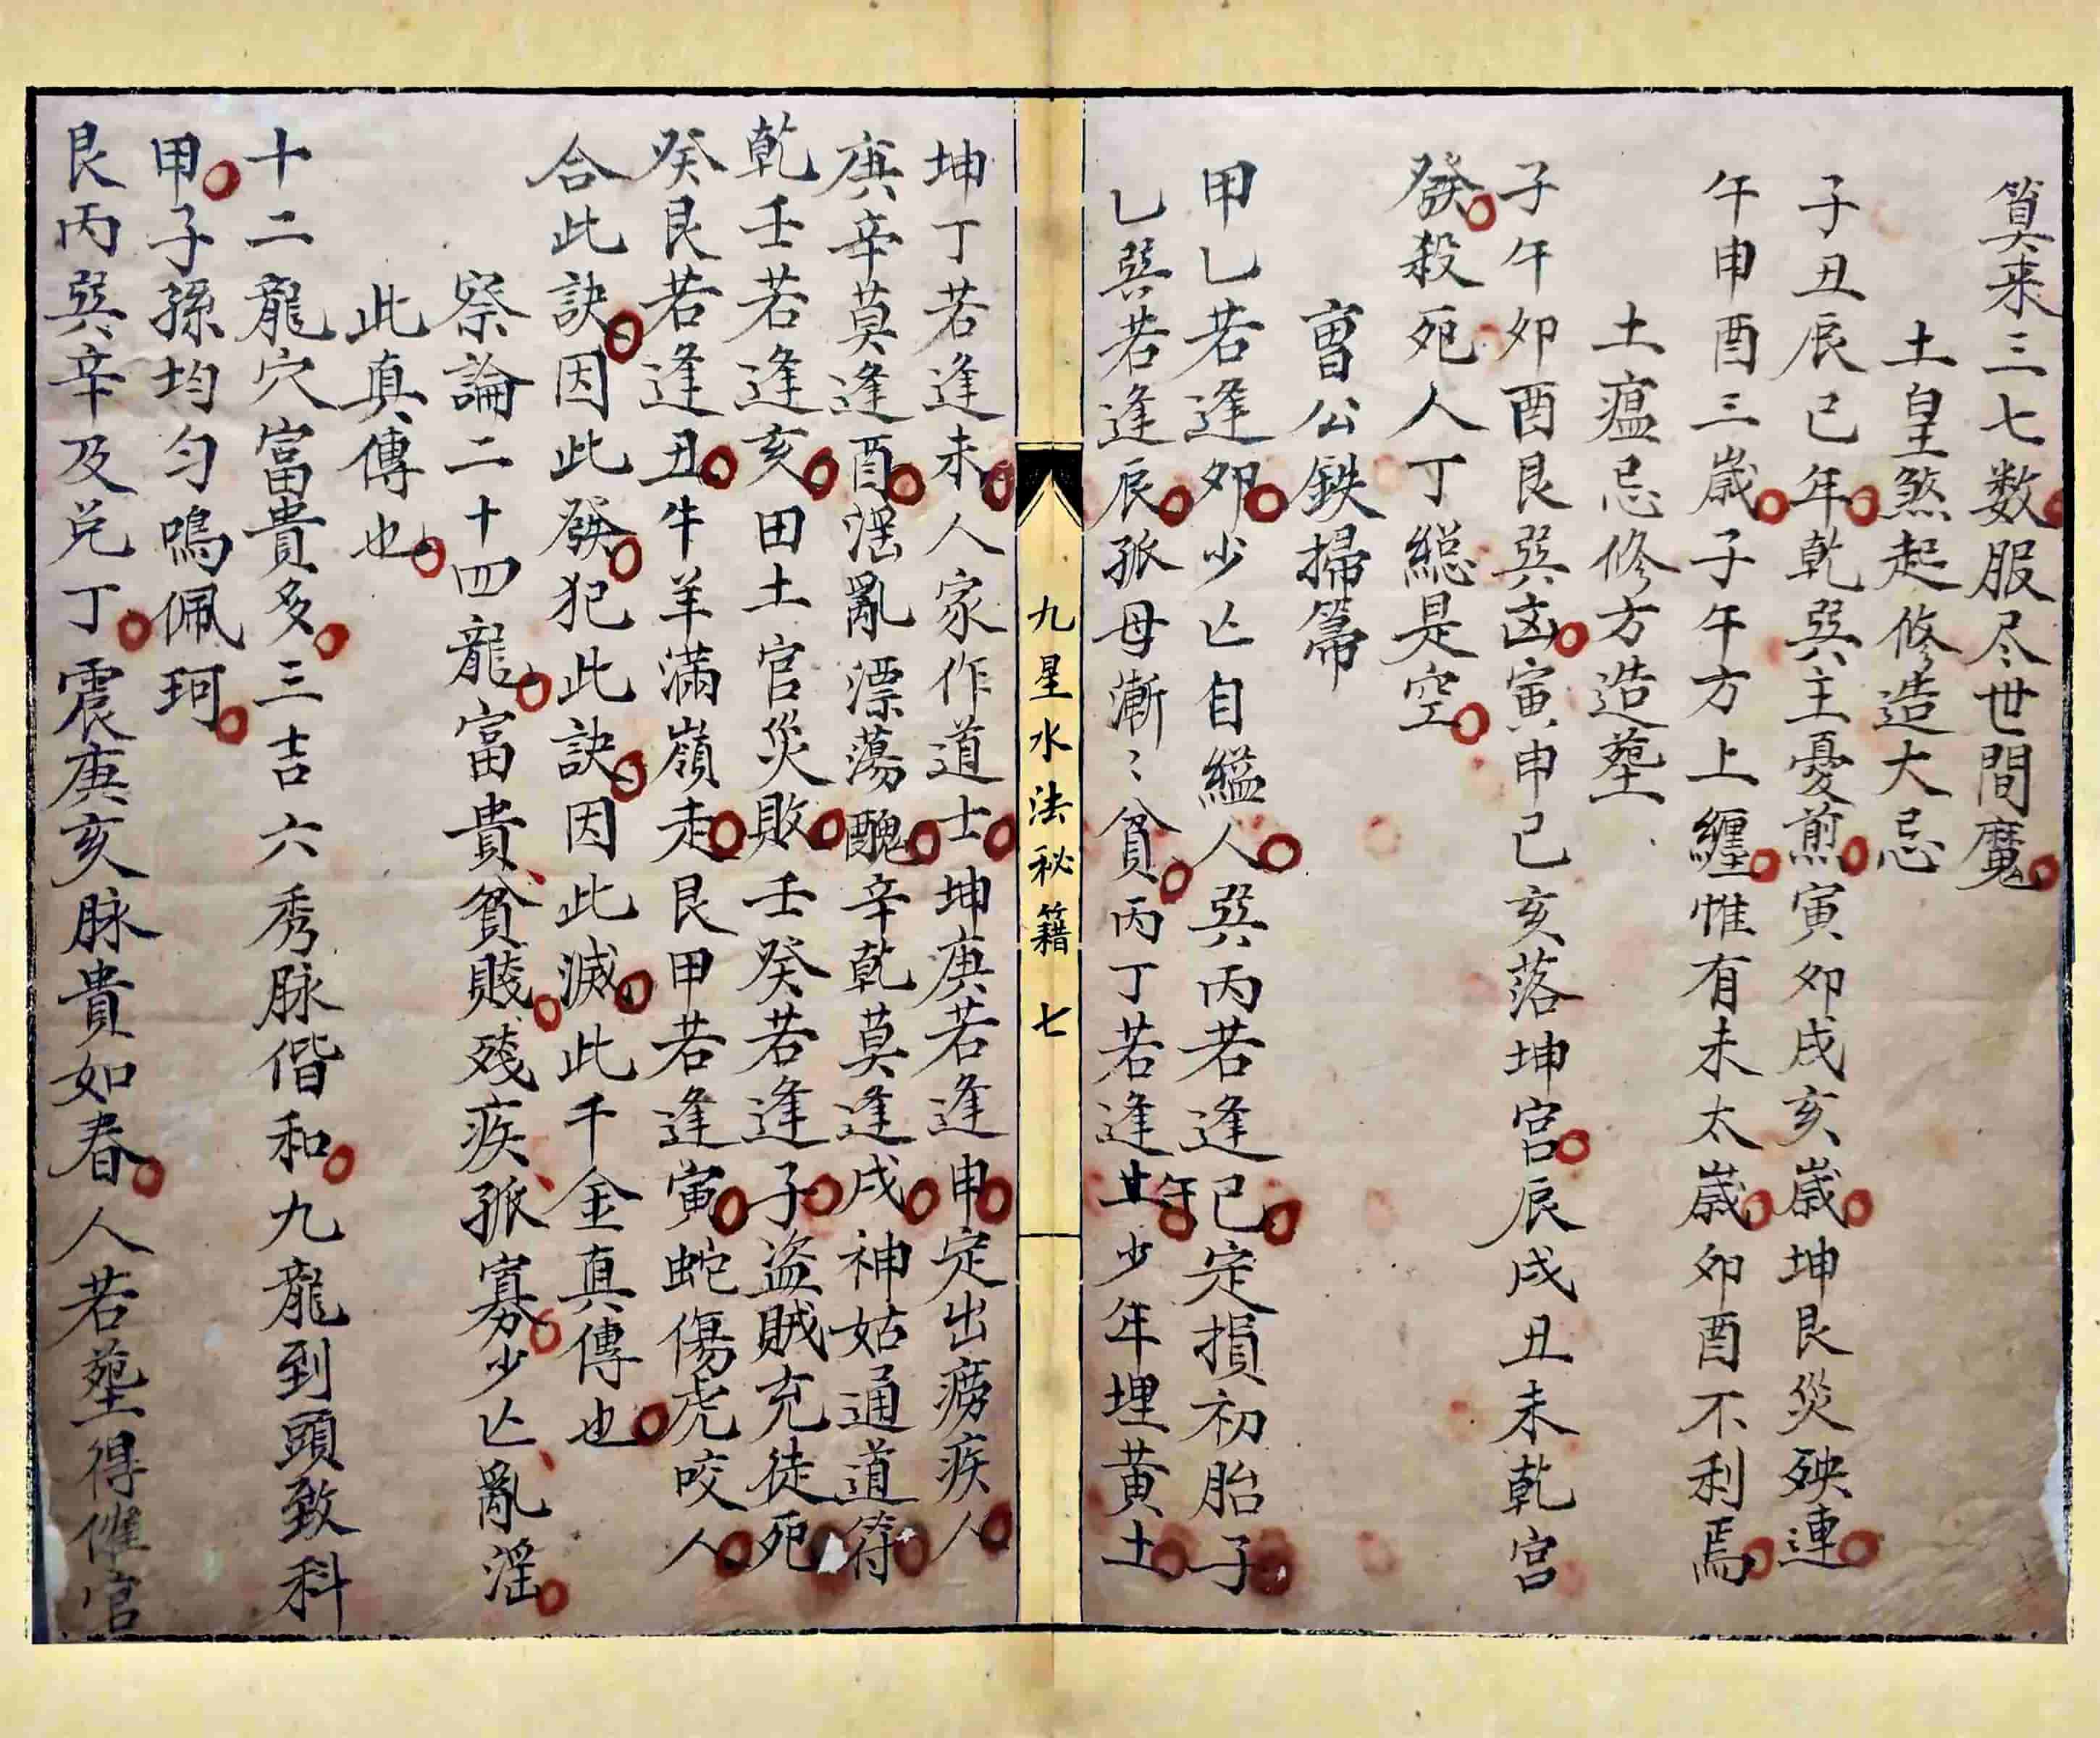 算来三七数服尽世間魔
土皇煞起修造大忌
子丑辰已年乾巽主憂煎寅卯戌亥歲坤艮災殃連
午申酉三歲子午方上纏惟有未太歲卯酉不利焉
土瘟忌修方造塟
子午卯酉艮巽凶寅申已亥落坤宮辰戌丑未乾宮
發殺死人丁總是空
曹公鉄掃箒
甲乙若逢卯少亡自縊人巽丙若逢巳定損初胎子
乙巽若逢辰孤母漸〻貧丙丁若逢午少年埋黄土
九星水法秘籍 七
坤丁若逢未人家作道士坤庚若逢申定出癆疾人
庚辛莫逢酉滛亂漂蕩醜辛乾莫逢戌神姑通道符
乾壬若逢亥田土官災敗壬癸若逢子盜賊充徒死
癸艮若逢丑牛羊滿嶺走艮甲若逢寅蛇傷虎咬人
合此訣因此發犯此訣因此滅此千金真傳也
察論二十四龍富貴貧賤殘疾孤寡少亡亂滛
此真傳也
十二龍穴富貴多三吉六秀脉偕和九龍到頭致科
甲子孫均匀鳴佩珂
艮丙巽辛及兑丁震庚亥脉貴如春人若塟得催官